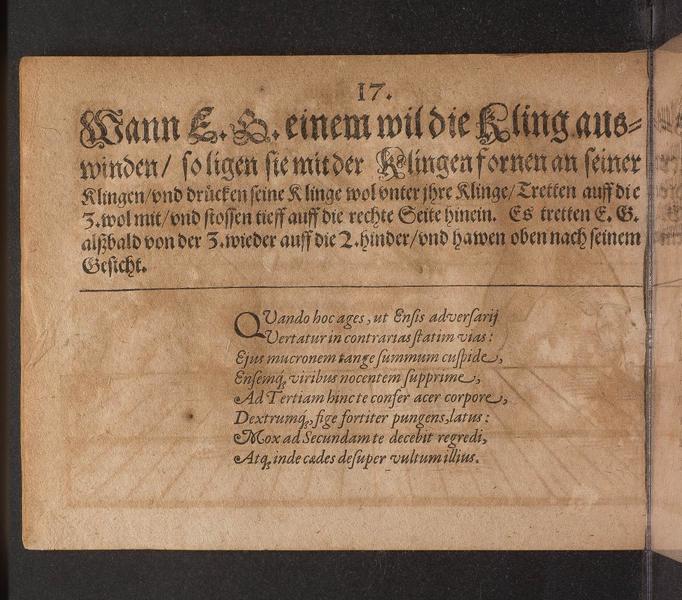 17.
Wann E. G. einem wil die Kling aus-
winden/ so ligen sie mit der Klingen fornen an seiner
Klingen/vnd drücken seine Klinge wol vnter jhre Klinge/Tretten auff die
3. wol mit/vnd stossen tieff auff die rechte Seite hinein. Es tretten E. G.
alßbald von der 3. wieder auff die 2. hinder/vnd hawen oben nach seinem
Gesicht.
QVando hoc ages, ut Ensis adversarij
Vertatur in contrarias statim vias:
Ejus mucronem tange summum cuspide,
Ensemq, viribus nocentem supprime,
Ad Tertiam hinc te confer acer corpore,
Dextrumq, fige fortiter pungens, latus:
Mox ad Secundam te decebit regredi,
Atq, inde cædes desuper vultum illius.